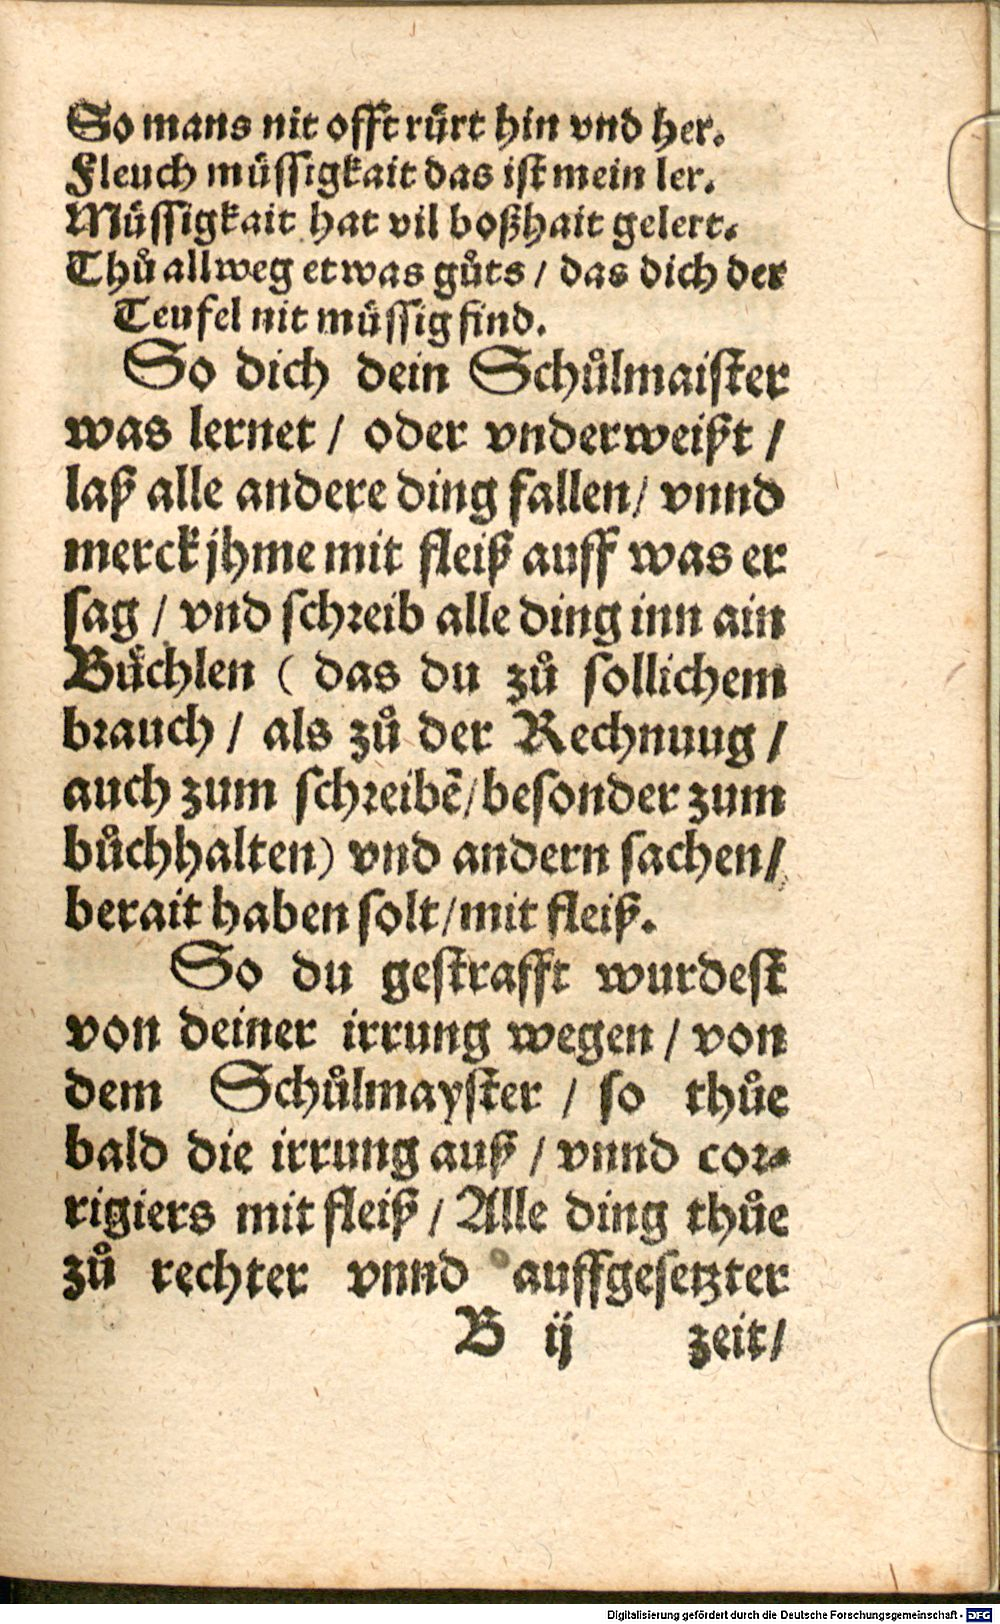 So mans nit offt rürt hin vnd her.
Fleuch müssigkait das ist mein ler.
Müssigkait hat vil boßhait gelert.
Thů allweg etwas gůts / das dich der
Teufel nit müssig find.
So dich dein Schůlmaister
was lernet / oder vnderweißt /
laß alle andere ding fallen / vnnd
merck jhme mit fleiß auff was er
sag / vnd schreib alle ding inn ain
Büchlen ( das du zů sollichem
brauch / als zů der Rechnuug /
auch zum schreibẽ / besonder zum
bůchhalten ) vnd andern sachen /
berait haben solt / mit fleiß.
So du gestrafft wurdest
von deiner irrung wegen / von
dem Schůlmayster / so thůe
bald die irrung auß / vnnd cor⸗
rigiers mit fleiß / Alle ding thůe
zů rechter vnnd auffgesetzter
B ij zeit /
Digitalisierung gefördert durch die Deutsche Forschungsgemeinschaft - DFG